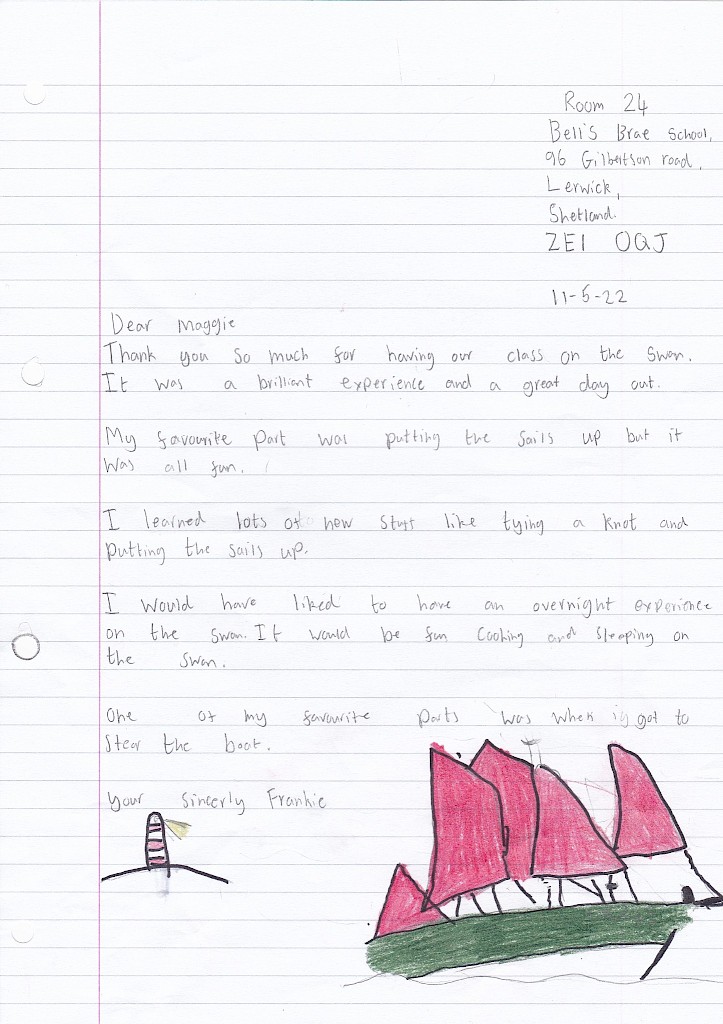 Room 24
Bell's Brae School,
96 Gilbertson road,
Lerwick,
Shetland.
ZE1 0QJ
11-5-22
Dear Maggie
Thank you so much for having our class on the Swan.
It was a brilliant experience and a great day out.
My favourite part was putting the sails up but it
was all fun.
I learned lots of new stuff like tying a knot and
putting the sails up.
I would have liked to have an overnight experience
on the swan. It would be fun cooking and sleeping on
the swan.
One of my favourite parts was when i got to
stear the boat.
your sincerly Frankie